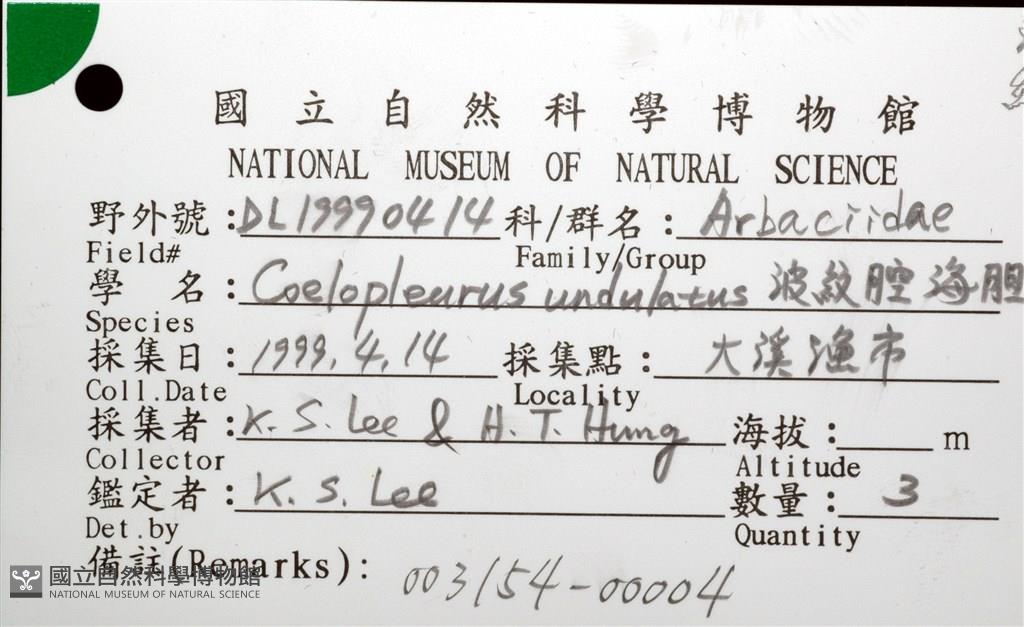 國立自然科學博物館
NATIONAL MUSEUM OF NATURAL SCIENCE
野外號：DL19990414 科/群名：Arbaciidae
Field# Family/Group
學 名：Coelopleurus undulatus 波紋腔海胆
Species
採集日：1999.4.14 採集點：大溪漁市
Coll.Date Locality
採集者：K.S.Lee & H.T.Hung 海拔： m
Collector Altitude
鑑定者：K.S.Lee 數量：3
Det.by Quantity
備註(Remarks)：003154-00004
國立自然科學博物館
NATIONAL MUSEUM OF NATURAL SCIENCE